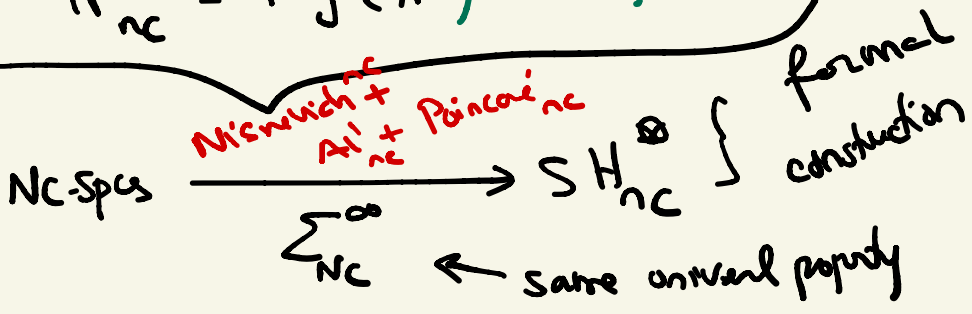 nc
Nisnevich nc +
A¹nc + Poincaré nc
NC-Spcs ⟶ SH⊗nc } formal
construction
Σ∞NC ← same univeral poprity